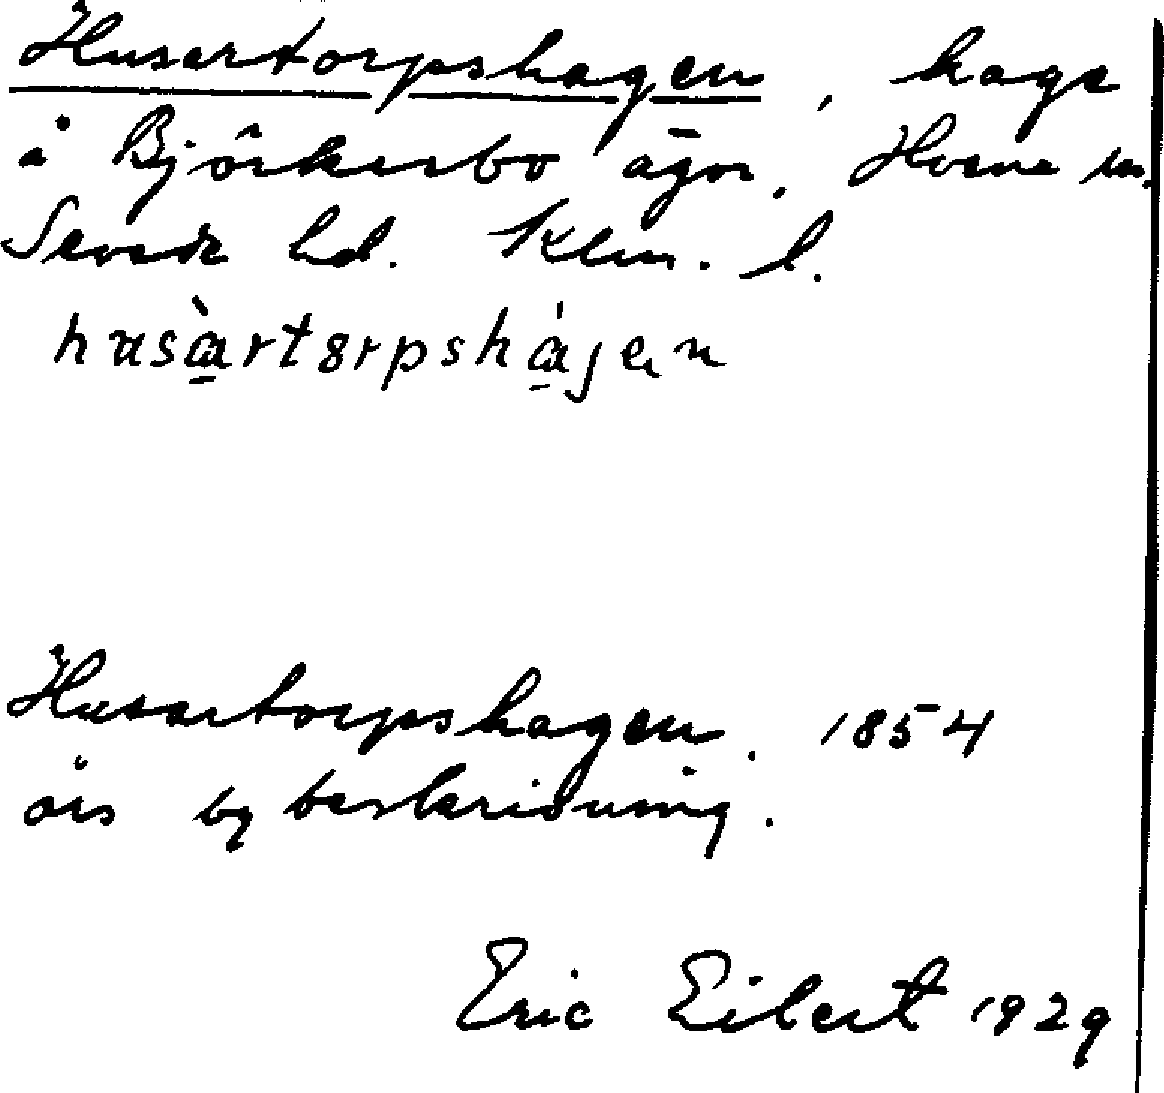 Husartorpshagen, hage
å Björkerbo ägor. Horne sn.
Sevede hd. Klm. l.
husàrtorpshágen
Husartorpshagen. 1854
års bybeskrivning.
Eric Eilert 1929